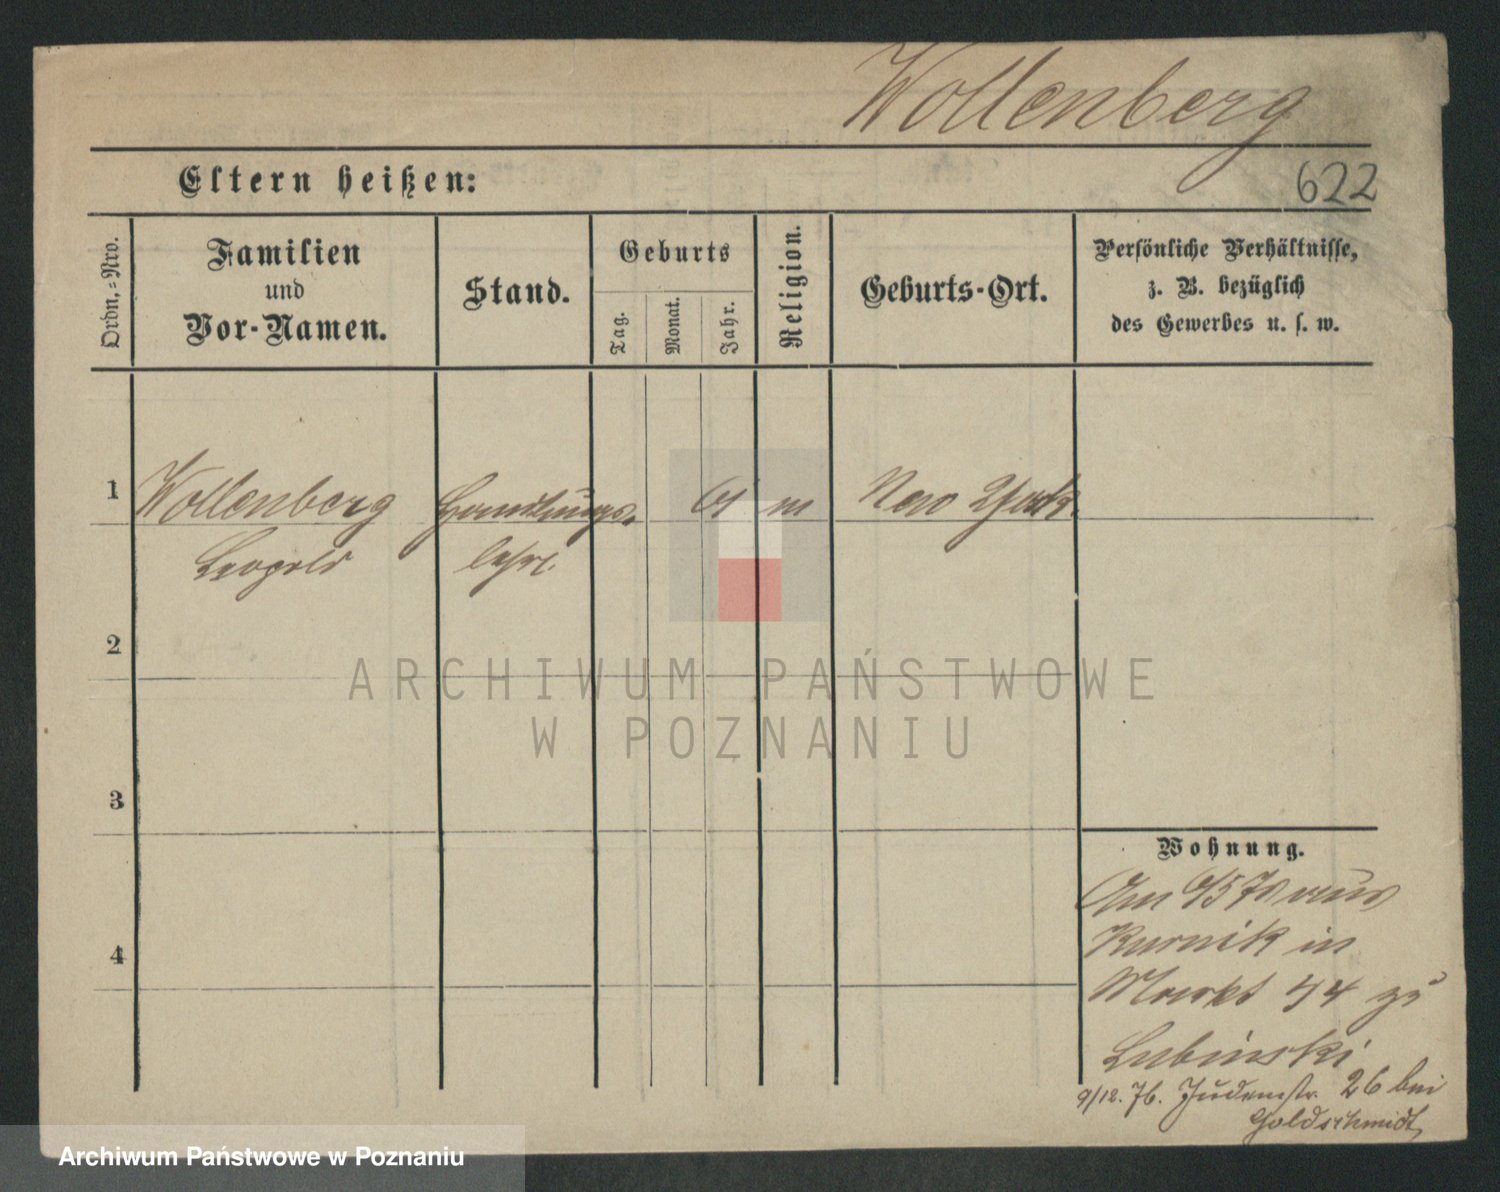 Wollenberg
Eltern heißen:
622
Ordn.-Nro.
Familien
und
Vor-Namen.
Stand.
Geburts
Tag.
Monat.
Jahr.
Religion.
Geburts-Ort.
Persönliche Verhältnisse,
z. B. bezüglich
des Gewerbes u. s. w.
1
Wollenberg
Leopold
Handlungs-
lehrl.
61
m
New York.
2
3
4
Wohnung.
Am aus
Kurnik in
Markt 44 zu
Lubinski
9/12. 76. Judenstr. 26 bei
Goldschmidt
ARCHIWUM PAŃSTWOWE
W POZNANIU
Archiwum Państwowe w Poznaniu